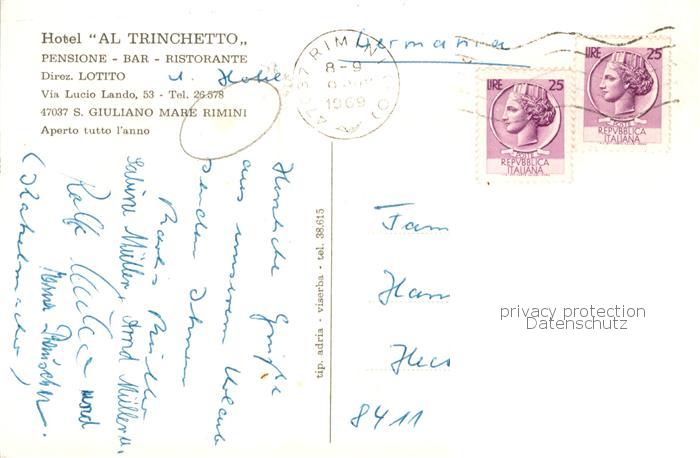 Hotel “AL TRINCHETTO„
PENSIONE - BAR - RISTORANTE
Direz. LOTITO
Via Lucio Lando, 53 - Tel. 26578
47037 S. GIULIANO MARE RIMINI
Aperto tutto l'anno
Hotel
47037 RIMINI (FO)
8-9
1969
Germania
LIRE 25
POSTE
REPVBBLICA
ITALIANA
LIRE 25
POSTE
REPVBBLICA
ITALIANA
Herzliche Grüße
aus unserem Urlaub
senden Ihnen
Müller
Sabine Müller, Arnd Müller u.
Ralf Müller und
tip. adria - viserba - tel. 38.615
Fam
Han
8411
privacy protection
Datenschutz